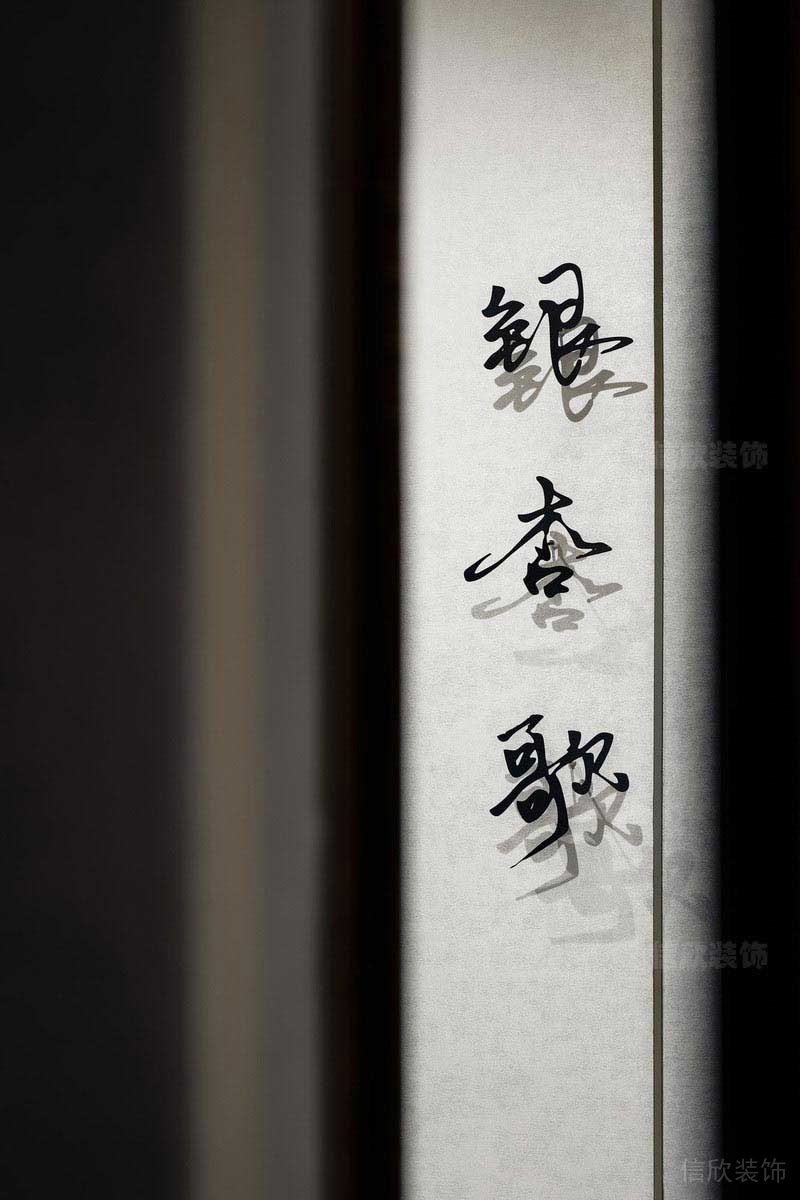 銀杏歌
信欣装饰
信欣装饰
信欣装饰